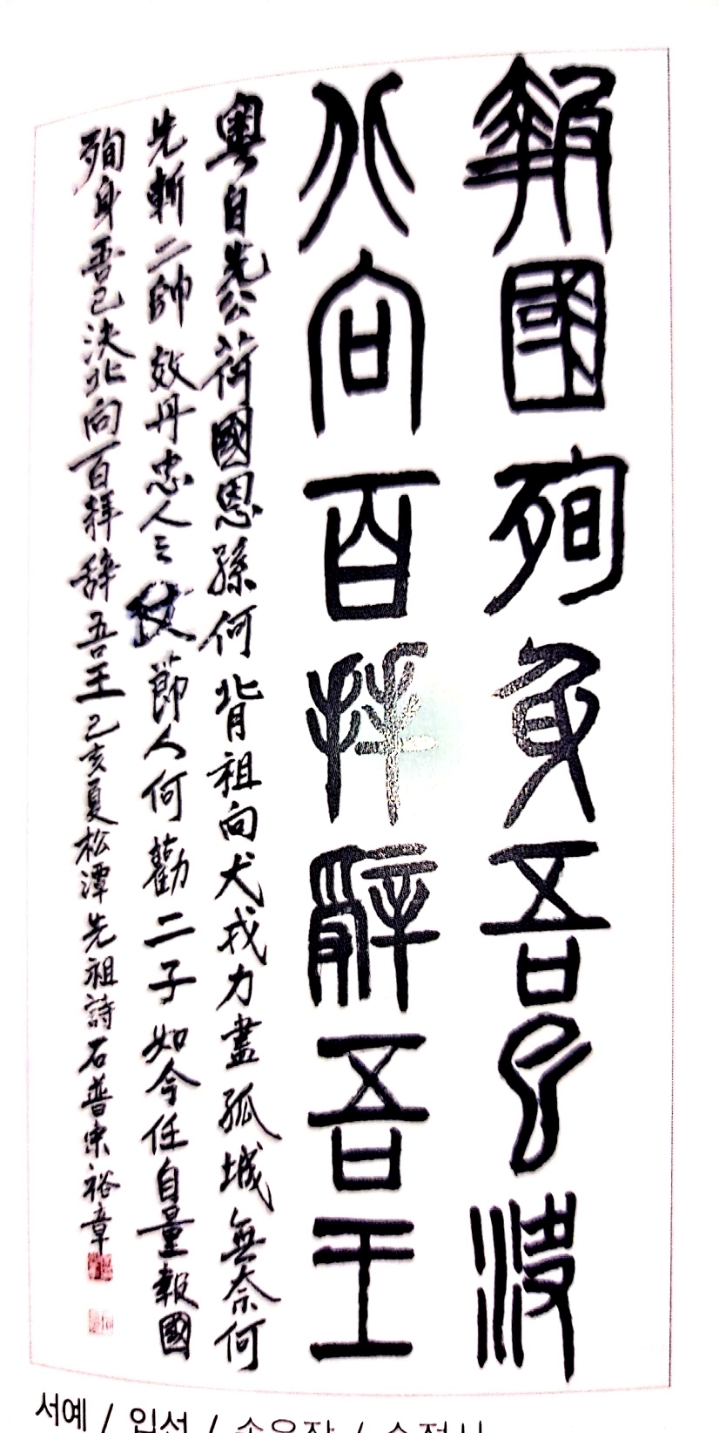 報國殉身吾已決
北向百拜辭吾王
粤自先公荷國恩孫何背祖向犬戎力盡孤城無奈何
先斬二帥效丹忠人之仗節人何勸二子如今任自量報國
殉身吾已決北向百拜辞吾王己亥夏松潭先祖詩石普宋裕章
서예 / 입선 /